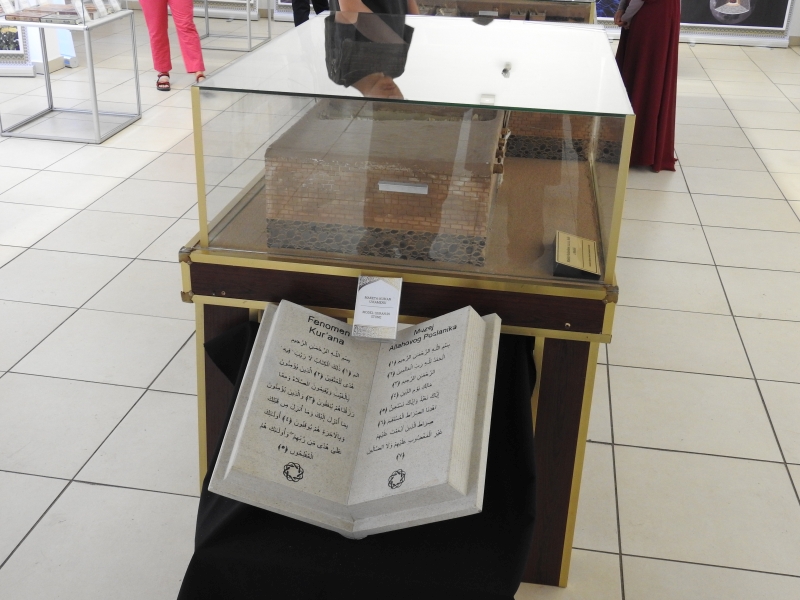 Fenomen
Kur'ana
بسم الله الرحمن الرحيم
الم (١) ذلك الكتاب لا ريب فيه
هدى للمتقين (٢) الذين يؤمنون
بالغيب ويقيمون الصلاة ومما
رزقناهم ينفقون (٣) والذين يؤمنون
بما أنزل إليك وما أنزل من قبلك
وبالآخرة هم يوقنون (٤) أولئك
على هدى من ربهم وأولئك هم
المفلحون (٥)
Muzej
Allahovog Poslanika
بسم الله الرحمن الرحيم (١)
الحمد لله رب العالمين (٢)
الرحمن الرحيم (٣)
مالك يوم الدين (٤)
إياك نعبد وإياك نستعين (٥)
اهدنا الصراط المستقيم (٦)
صراط الذين أنعمت عليهم
غير المغضوب عليهم ولا الضالين
(٧)